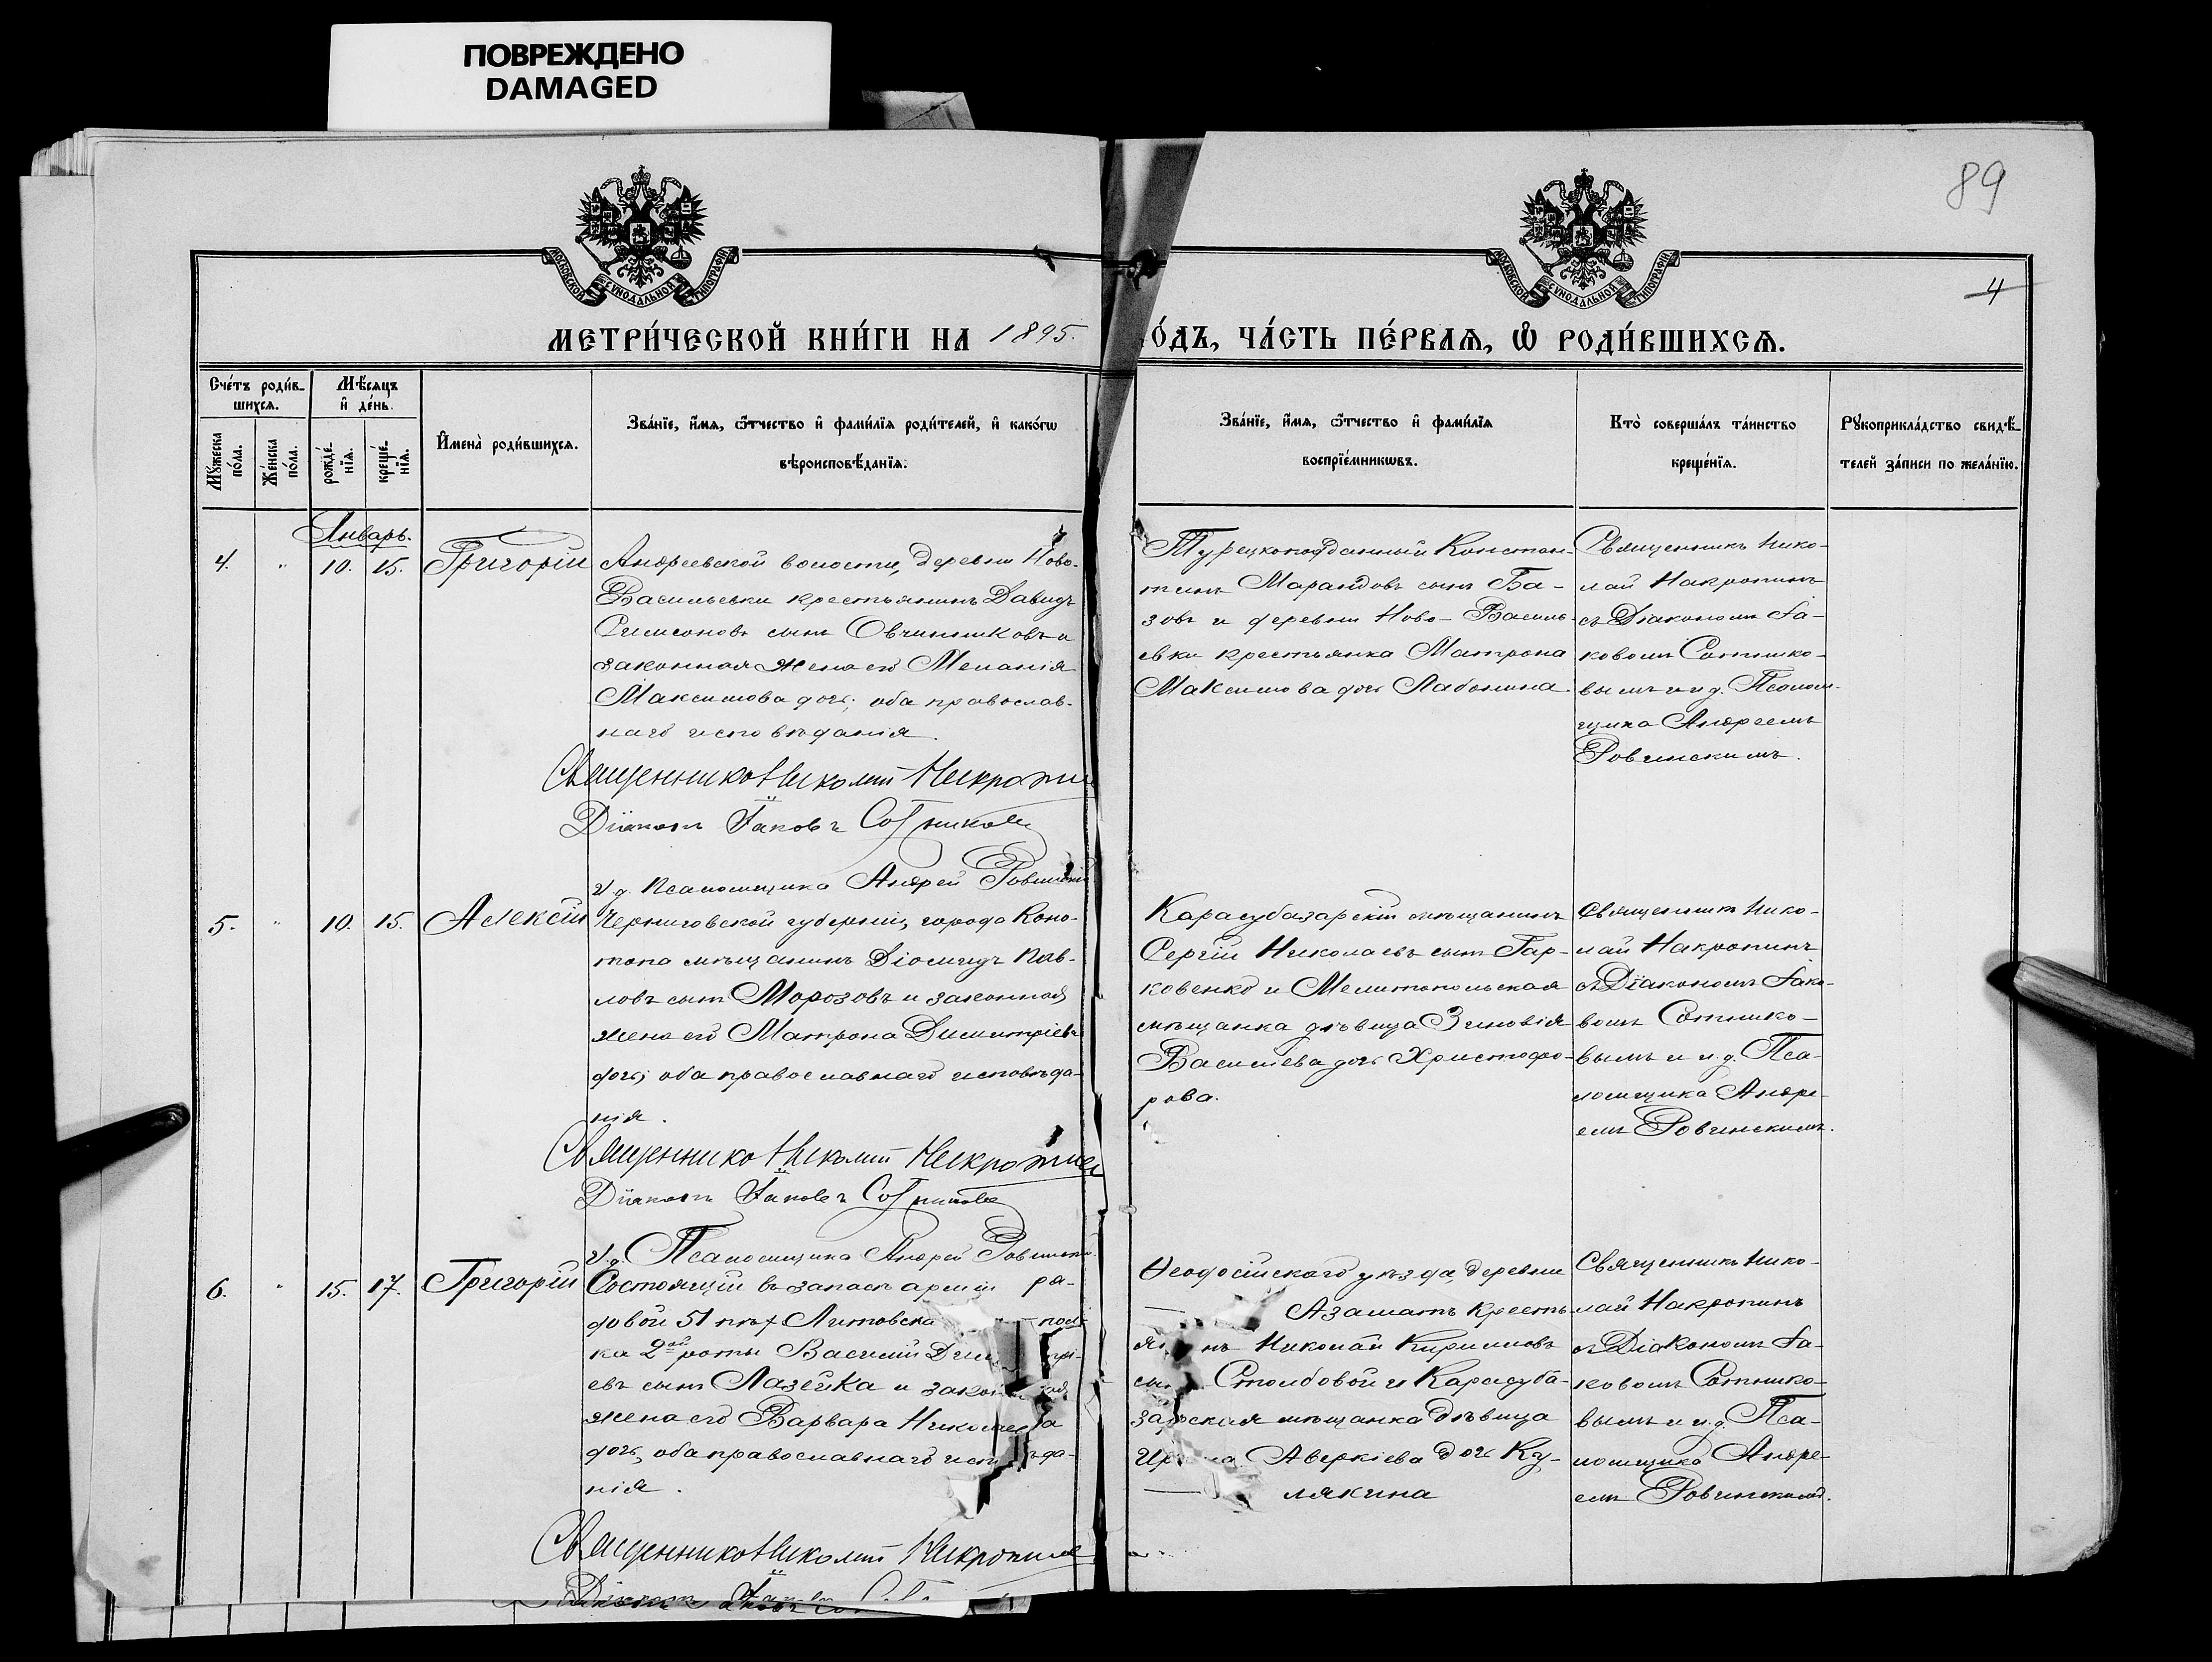 ПОВРЕЖДЕНО
DAMAGED
89
4
МОСКОВСКОЙ СѴНОДАЛЬНОЙ ТИПОГРАФІИ
МОСКОВСКОЙ СѴНОДАЛЬНОЙ ТИПОГРАФІИ
МЕТРИ́ЧЕСКОЙ КНИ́ГИ НА 1895.
О́ДЪ, ЧА́СТЬ ПЕ́РВАѦ, Ѿ РОДИ́ВШИХСѦ.
Сче́тъ роди́в-
шихсѧ.
Мꙋ́жеска по́ла.
Же́нска по́ла.
Мѣ́сѧцъ
и҆ де́нь.
рожде́-нїѧ.
креще́-нїѧ.
И҆мена̀ роди́вшихсѧ.
Зва́нїе, и҆́мѧ, ѻ҆́тчество и҆ фами́лїѧ роди́телей, и҆ како́гѡ
вѣроисповѣ́данїѧ.
Зва́нїе, и҆́мѧ, ѻ҆́тчество и҆ фами́лїѧ
воспрїе́мникѡвъ.
Кто̀ соверша́лъ та́инство
креще́нїѧ.
Рꙋкоприкла́дство свидѣ́-
телей за́писи по жела́нїю.
Январь.
4. " 10. 15. Григорій
Андреевской волости, деревни Ново-
Васильевки крестьянинъ Давидъ
Симсоновъ сынъ Овчинниковъ и
законная жена его Меланія
Максимова дочь; оба православ-
наго исповѣданія.
Священникъ Николай Накропин
Діаконъ Іаковъ Сотников
И. д. Псаломщика Андрей Ровинскій
Турецкоподданный Констан-
тинъ Марандовъ сынъ Ба-
зовъ и деревни Ново-Василь-
евки крестьянка Матрона
Максимова дочь Лабонина.
Священникъ Нико-
лай Накропинъ
съ Діакономъ Іа-
ковомъ Сотнико-
вымъ и и. д. Псалом-
щика Андреемъ
Ровинскимъ.
5. " 10. 15. Алексій
Черниговской губерніи, города Коно-
топа мѣщанинъ Діомидъ Пав-
ловъ сынъ Морозовъ и законная
жена его Матрона Димитріева
дочь; оба православнаго исповѣда-
нія.
Священникъ Николай Накропин
Діаконъ Іаковъ Сотников
И. д. Псаломщика Андрей Ровинскій
Карасубазарскій мѣщанинъ
Сергій Николаевъ сынъ Гар-
ковенко и Мелитопольская
мѣщанка дѣвица Зиновія
Василіева дочь Христофо-
рова.
Священникъ Нико-
лай Накропинъ
съ Діакономъ Іако-
вомъ Сотнико-
вымъ и и. д. Пса-
ломщика Андре-
емъ Ровинскимъ.
6. " 15. 17. Григорій
Состоящій въ запасѣ арміи ря-
довой 51 пѣх Литовска пол-
ка 2ой роты Василій Дим трі-
евъ сынъ Лазейка и закон ная
жена его Варвара Николаева
дочь, оба православнаго исп ѣда-
нія.
Священникъ Николай Накропин
Діаконъ Іаковъ
Ѳеодосійскаго уѣзда, деревни
Азаматъ кресть-
ян нъ Николай Кирилловъ
сы Столбовой и Карасуба-
зарская мѣщанка дѣвица
Ир на Аверкіева дочь Ку-
лякина
Священникъ Нико-
лай Накропинъ
съ Діакономъ Іа-
ковомъ Сотнико-
вымъ и и. д. Пса-
ломщика Андре-
емъ Ровинскимъ.